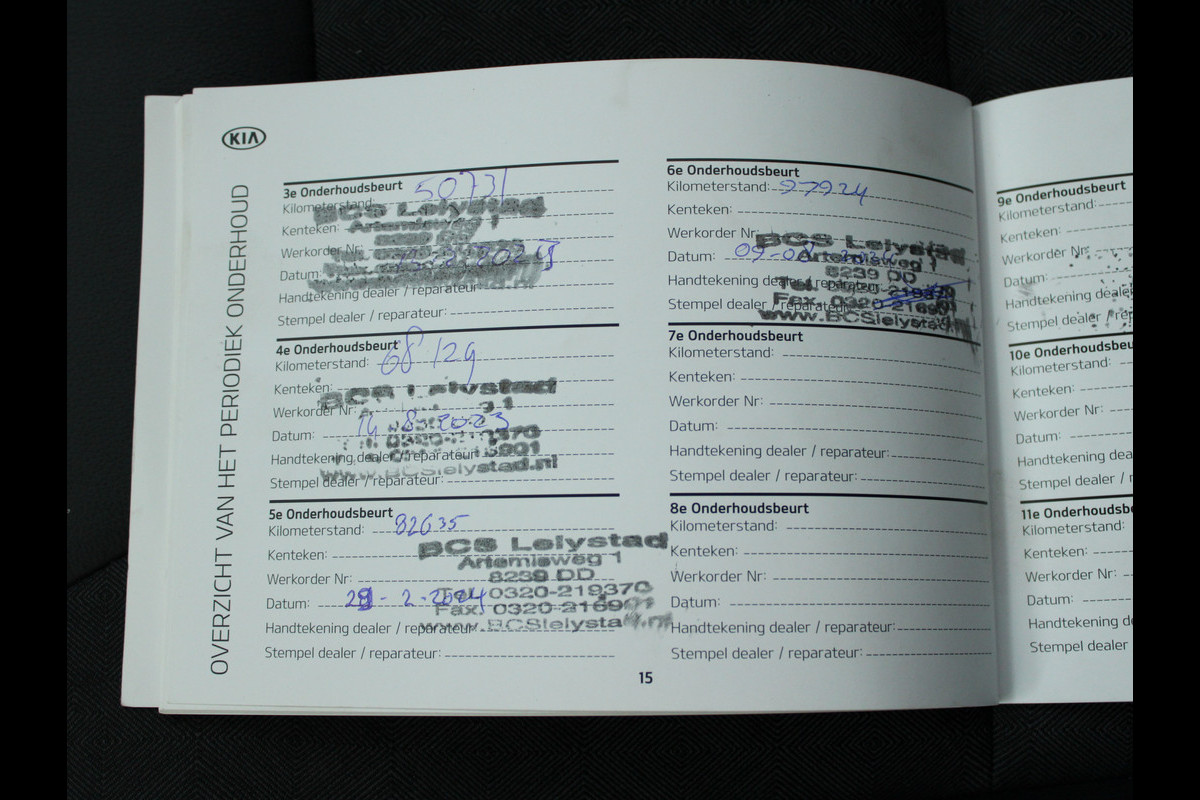 KIA
OVERZICHT VAN HET PERIODIEK ONDERHOUD
3e Onderhoudsbeurt
Kilometerstand: 50731
BCS Lelystad
Kenteken: Artemisweg 1
Werkorder Nr:
Datum:
Handtekening dealer / reparateur:
Stempel dealer / reparateur:
4e Onderhoudsbeurt
Kilometerstand: 68129
Kenteken:
BCS Lelystad
Werkorder Nr:
Datum: 14 8-2023
Handtekening dealer / reparateur:
www.BCSlelystad.nl
Stempel dealer / reparateur:
5e Onderhoudsbeurt
Kilometerstand: 82635
BCS Lelystad
Kenteken:
Artemisweg 1
Werkorder Nr:
8239 DD
Datum: - 2-2024
Tel. 0320-219370
Fax. 0320-216901
Handtekening dealer / reparateur:
www.BCSlelystad.nl
Stempel dealer / reparateur:
6e Onderhoudsbeurt
Kilometerstand: 97924
Kenteken:
Werkorder Nr:
BCS Lelystad
Datum: 09-08
Artemisweg 1
8239 DD
Handtekening dealer / reparateur:
Tel. 0320-219370
Fax. 0320-216901
Stempel dealer / reparateur:
www.BCSlelystad.nl
7e Onderhoudsbeurt
Kilometerstand:
Kenteken:
Werkorder Nr:
Datum:
Handtekening dealer / reparateur:
Stempel dealer / reparateur:
8e Onderhoudsbeurt
Kilometerstand:
Kenteken:
Werkorder Nr:
Datum:
Handtekening dealer / reparateur:
Stempel dealer / reparateur:
15
9e Onderhoudsbeurt
Kilometerstand:
Kenteken:
Werkorder Nr:
Datum:
Handtekening deale
Stempel dealer / rep
10e Onderhoudsbeu
Kilometerstand:
Kenteken:
Werkorder Nr:
Datum:
Handtekening dea
Stempel dealer / r
11e Onderhoudsb
Kilometerstand:
Kenteken:
Werkorder Nr:
Datum:
Handtekening de
Stempel dealer